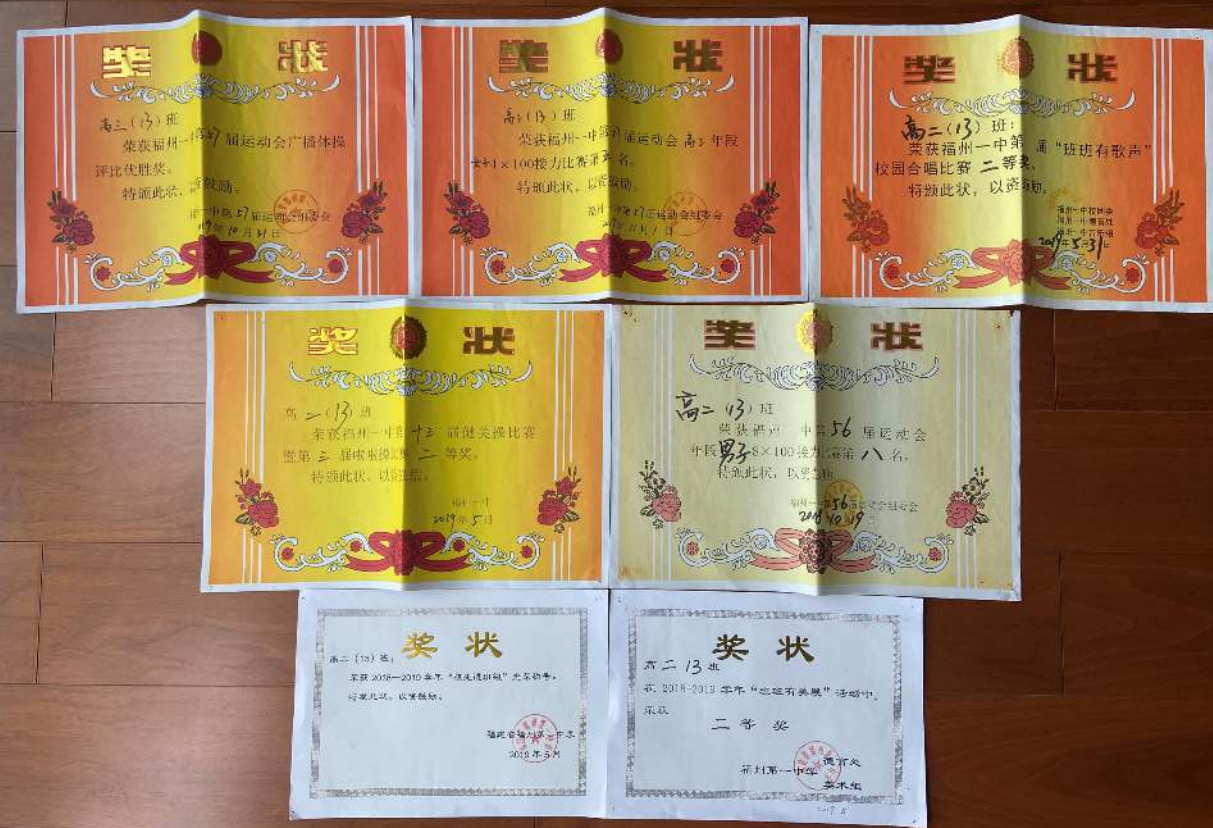 奖 状
高三（13）班
荣获福州一中第57届运动会广播体操
评比优胜奖。
特颁此状，以资鼓励。
福州一中第57届运动会组委会
2019年10月31日
奖 状
高三（13）班
荣获福州一中第57届运动会高三年段
女子4×100接力比赛第
名。
特颁此状，以资鼓励。
福州一中第57届运动会组委会
2019年11月1日
奖 状
高二（13）班：
荣获福州一中第 届“班班有歌声”
校园合唱比赛 二等奖，
特颁此状，以资鼓励。
福州一中校团委
福州一中德育处
福州一中音乐组
2019年5月31日
奖 状
高二（13）班
荣获福州一中第十三届健美操比赛
暨第三届啦啦操比赛二等奖。
特颁此状，以资鼓励。
福州一中
2019年5月
奖 状
高二（13）班
荣获福州一中第56届运动会
年段男子8×100接力比赛第八名。
特颁此状，以资鼓励
福州一中第56届运动会组委会
2018年10月19日
奖 状
高二（13）班：
荣获2018—2019学年“校先进班级”光荣称号。
特发此状，以资鼓励。
福建省福州第一中学
2019年5月
奖 状
高二13班
在2018-2019学年“班班有美展”活动中，
荣获
二等奖
福州第一中学 德育处
美术组
2019.5